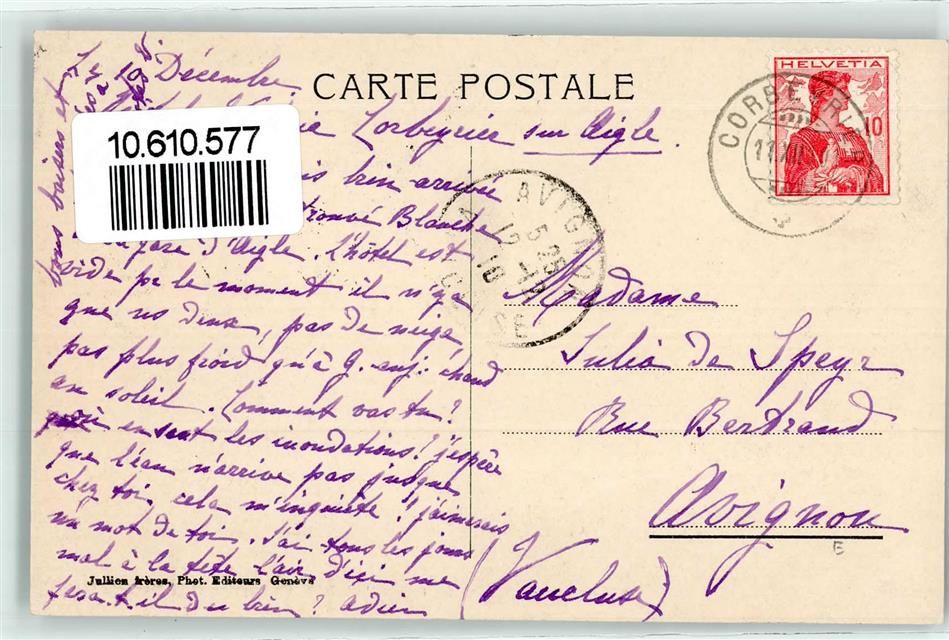 Le 10 Décembre
CARTE POSTALE
Corbeyrier sur Aigle.
10.610.577
bien arrivée
trouvé Blanche
gare d'Aigle. l'hôtel est
vide pr le moment il n'y a
que ns deux, pas de neige,
pas plus froid qu'à G. auj: chaud
au soleil. Comment vas tu?
où en sont les inondations! j'espère
que l'eau n'arrive pas jusque
chez toi, cela m'inquiète! j'aimerais
un mot de toi. J'ai tous les jours
mal à la tête l'air d'ici me
fera-t-il du bien? adieu
bons baisers et
Jullien frères, Phot. Editeurs Genève
HELVETIA
10
CORBEYRIER
11 XII
AVIGNON
5 25
12 XII
10
VAUCLUSE
Madame
Julia de Speyr
Rue Bertrand
Avignon
(Vaucluse)
E